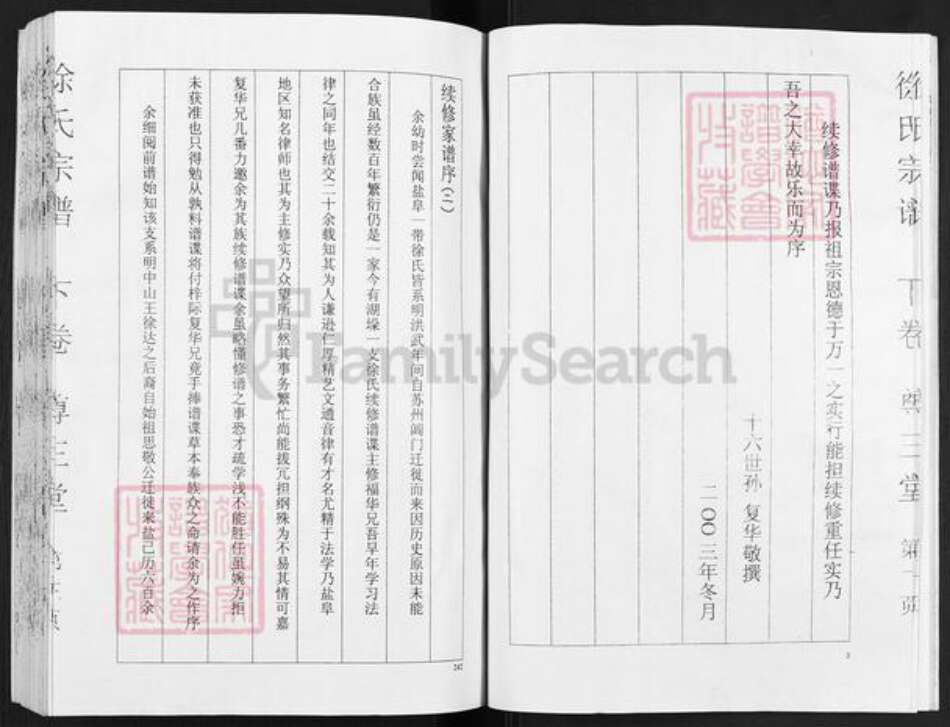 续修谱谍乃报祖宗恩德于万一之实行能担续修重任实乃
吾之大幸故乐而为序
十六世孙 复华敬撰
二〇〇三年冬月
徐氏宗谱
卷
堂
3
续修家谱序(二)
余幼时尝闻盐阜一带徐氏皆系明洪武年间自苏州阊门迁徙而来因历史原因未能
合族虽经数百年繁衍仍是一家今有湖垛一支徐氏续修谱谍主修福华兄吾早年学习法
律之同年也结交二十余载知其为人谦逊仁厚精艺文通音律有才名尤精于法学乃盐阜
地区知名律师也其为主修实乃众望所归然其事务繁忙尚能拔冗担纲殊为不易其情可嘉
复华兄几番力邀余为其族续修谱谍余虽略懂修谱之事恐才疏学浅不能胜任虽婉力拒
未获准也只得勉从孰料谱谍将付梓际复华兄竟手捧谱谍草本奉族众之命请余为之作序
余细阅前谱始知该支系明中山王徐达之后裔自始祖思敬公迁徙来盐已历六百余
247
徐氏宗谱
卷
堂
FamilySearch